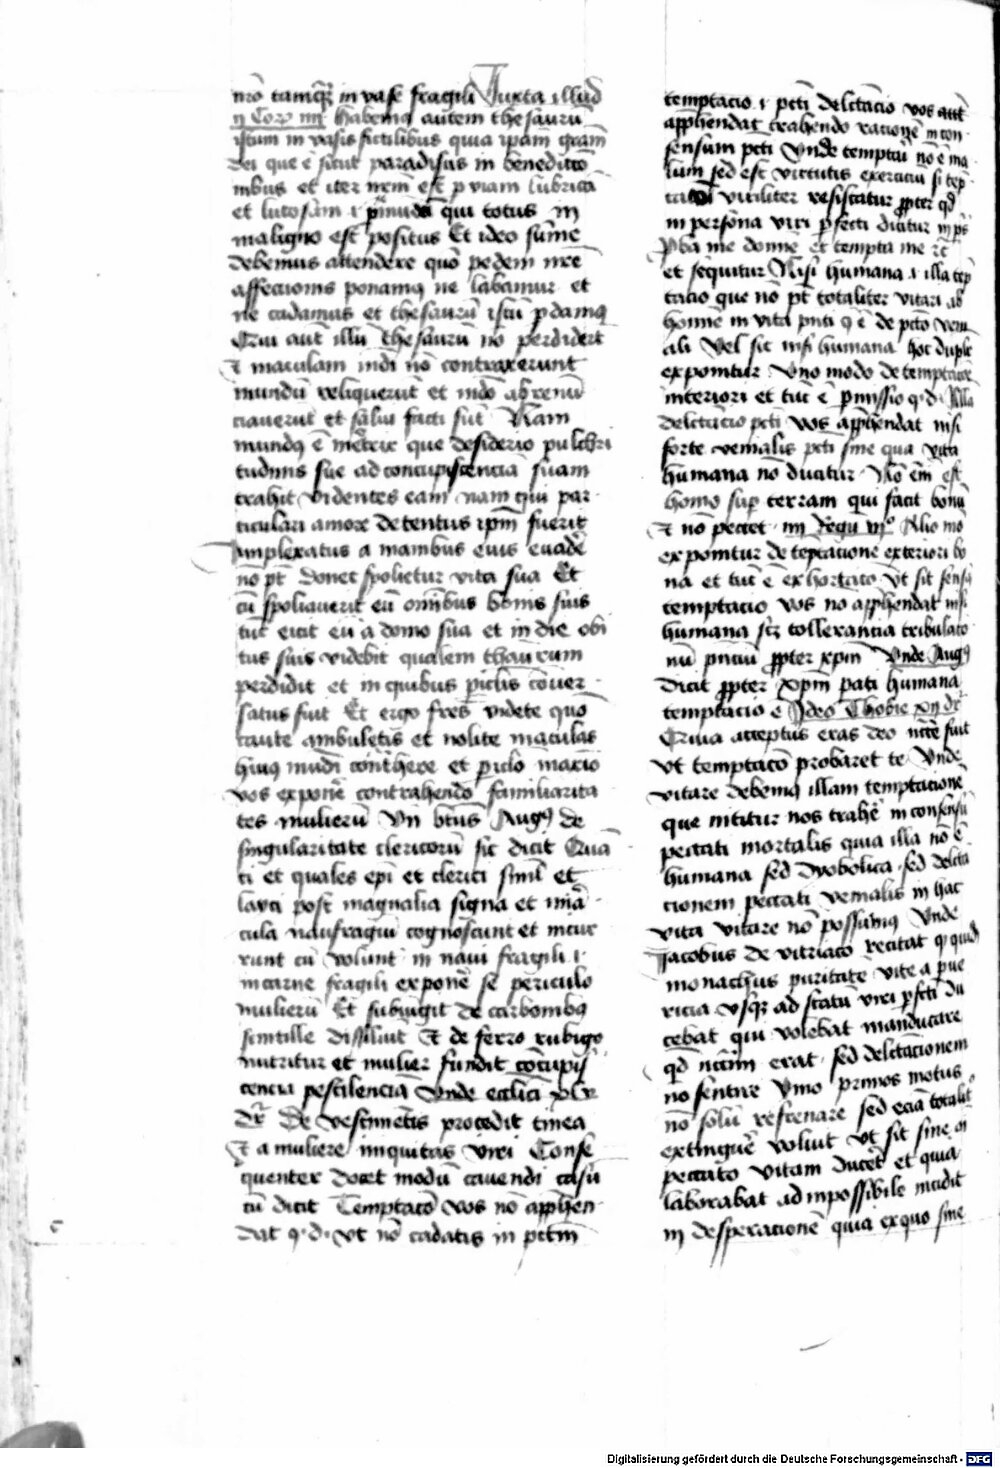 nr̄o tamq̄ȝ in vase fragili Juxta illud
ij Cor iiij Habemus autem thesaurū
istum in vasis fictilibus quia ip̄am gr̄am
dei que ē sicut paradisus in benedictō
nibus et iter nr̄m est p viam lubricā
et lutosam qui totus in
maligno est positus Et ideo sūme
debemus attendere quō pedem nr̄e
affectionis ponamꝯ ne labamur et
ne cadamus et thesaurū istū p̄damꝯ
Qui aut̄ illū thesaurū nō perdider̄t
et maculam mdi nō contraxerunt
mundū reliquerūt et mdō abrenū
ciauerūt et salui facti sūt Nam
mundꝯ ē que desiderio pulchri
tudinis sue ad concupiscencia suam
trahit videntes eam nam qui par
ticulari amore detentus ip̄m fuerit
amplexatus a manibus eius euadē
nō pt̄ donec spolietur vita sua Et
cū spoliauerit eū om̄ibus bonis suis
tūc eicit eū a domo sua et in die obi
tus suis videbit qualem thaurum
perdidit et in quibus piclis cōuer
satus fuit Et ergo fr̄es videte quō
caute ambuletis et nolite maculas
huiꝯ mūdi cont̄here et piclō maxīo
vos exponē contrahendo familiarita
tes mulierū Vn̄ bt̄us Augꝯ de
singularitate clericorū sic dicit Quā
ti et quales ep̄i et clerici simul et
layci post magnalia signa et mira
cula naufragiū cognoscunt et incur
runt cū volunt in naui fragili .i.
in carne fragili exponē se periculo
mulierū Et subiūgit de carbonibꝯ
scintille dissiliūt et de ferro rubigo
nutritur et mulier fundit cōcupis
cencia pestilenciā Vnde eccl̄ici xlij
dr̄ De vestimentis procedit tinea
et a muliere iniquitas viri Conse
quenter docet modū cauendi casū
cū dicit Temptacō vos nō app̄hen
dat q.d. vt nō cadatis in pctm̄
temptacio .i. pcti delectacio vos aūt
app̄hendat trahendo racionē in con
sensum pcti Vnde temptari nō ē ma
lum sed est virtutis exerciciū si tep̄
tacōi viriliter resistatur ꝓpter qd
in persona viri p̄fecti dicitur in ps̄
Proba me domine et tempta me rc̄
et sequitur Nisi humana .i. illa tep̄
tacio que nō pt̄ totaliter vitari ab
homīe in vita pn̄ti q̄ ē de pctō veni
ali Vel sic nisi humana hoc dupl̄r
exponitur Vno modo de temptacōe
interiori et tūc ē p̄missio q.d. Nulla
delectacio pcti vos app̄hendat nisi
forte venialis pcti sine qua vita
humana nō ducitur Nō em̄ est
homo sup̄ terram qui facit bonū
et nō peccet iij Regū viijº Alio mō
exponitur de tēptacione exteriori bo
na et tūc ē exhortacō vt sit sensꝯ
temptacio vos nō app̄hendat nisi
humana scȝ tollerancia tribulacō
nū pn̄ciū ꝓpter xpm̄ Vnde Augꝯ
dicit ꝓpter xpm̄ pati humana
temptacio ē Ideo Thobie xij dr̄
Quia acceptus eras deo nc̄ce fuit
vt temptacō probaret te Vnde
vitare debemꝯ illam temptacionē
que nititur nos trahē in consensū
peccati mortalis quia illa nō ē
humana sed dyabolica sed delcta
cionem peccati venialis in hac
vita vitare nō possumꝯ Vnde
Jacobus de vitriaco recitat qꝫ quidā
monachus puritatē vite a pue
ricia vsqȝ ad statū viri p̄fcti du
cebat qui volebat manducare
qd necm̄ erat sed delectacionem
nō sentire Vn̄o primos motus
nō solū refrenare sed ecia totalit̄
extinguē voluit vt sit sine oī
peccato vitam ducēt et quia
laborabat ad inpossibile incidit
in desperacionē quia ex quo sine